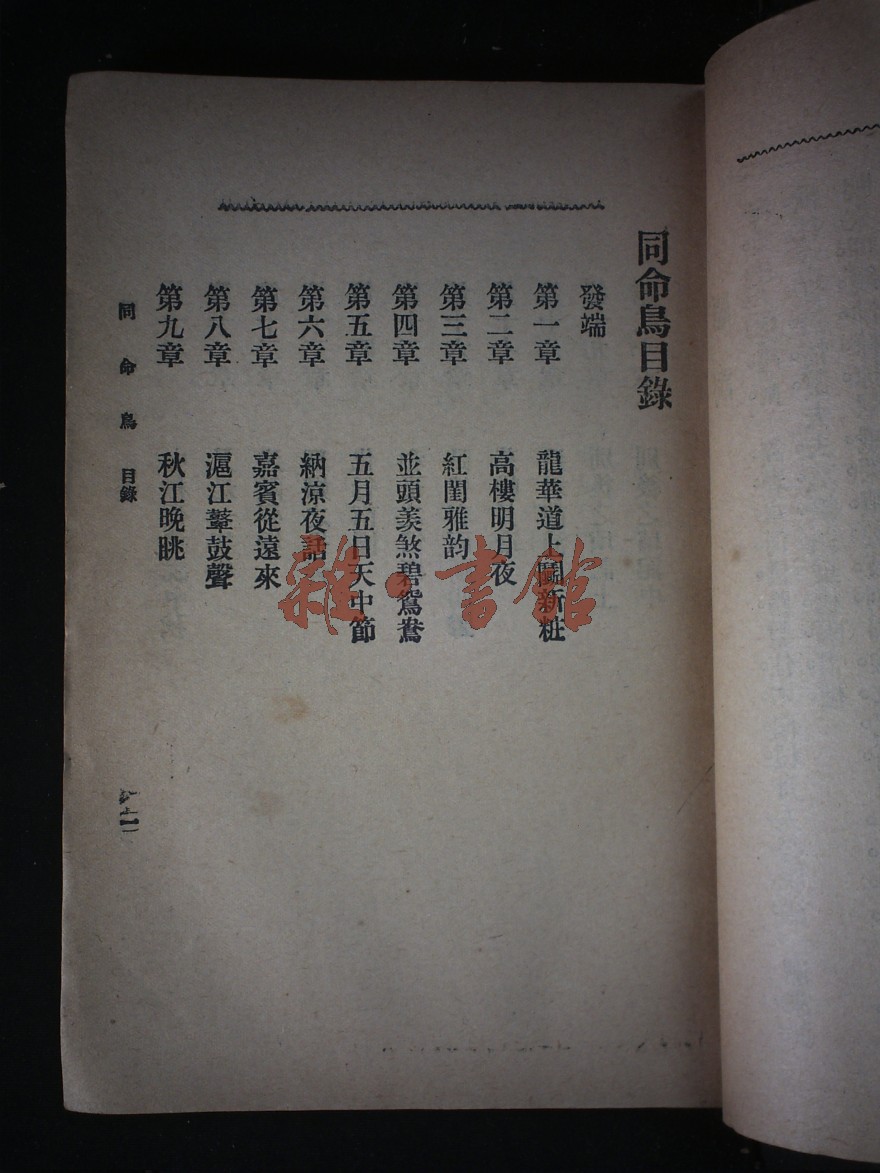 同命鳥目錄
發端
第一章 龍華道上鬭新粧
第二章 高樓明月夜
第三章 紅閨雅韵
第四章 並頭羨煞碧鴛鴦
第五章 五月五日天中節
第六章 納涼夜話
第七章 嘉賓從遠來
第八章 滬江鼙鼓聲
第九章 秋江晚眺
同命鳥 目錄
雜·書館